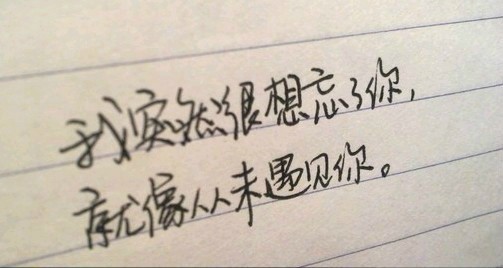 我突然很想忘了你,
就像从未遇见你。